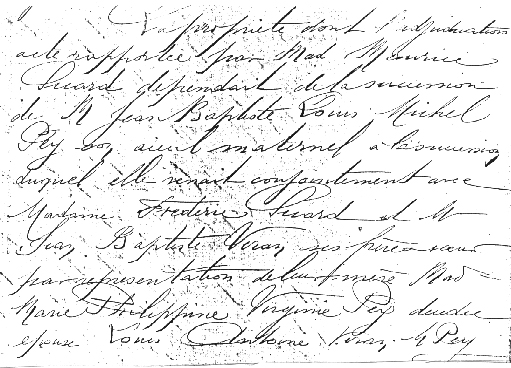 La propriété dont l'adjudication
acte rapportée par Mad Maurice
Suard dependait de la succession
de M Jean Baptiste Louis Michel
Pey son aieul maternel a la succession
duquel elle venait conjointement avec
Madame Frédéric Suard et Mr
Jean Baptiste Viran ses frère & sœur
par représentation de leur mère Mad
Marie Philippine Virginie Pey décédée
épouse Louis Antoine Viran Mr Pey